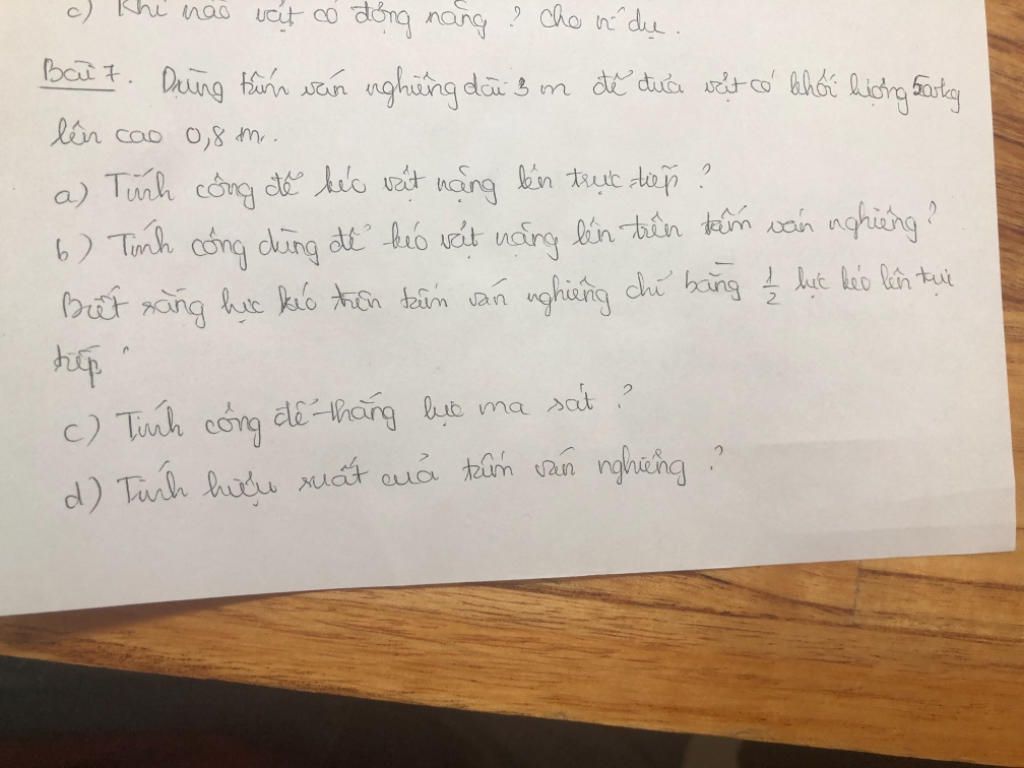 c) Khi nào vật có động năng ? Cho ví dụ.
Bài 7. Dùng tấm ván nghiêng dài 3 m để đưa vật có khối lượng kg
lên cao 0,8 m.
a) Tính công để kéo vật nặng lên trực tiếp ?
b) Tính công dùng để kéo vật nặng lên trên tấm ván nghiêng ?
Biết rằng lực kéo trên tấm ván nghiêng chỉ bằng 1/2 lực kéo lên trực
tiếp.
c) Tính công để thắng lực ma sát ?
d) Tính hiệu suất của tấm ván nghiêng ?